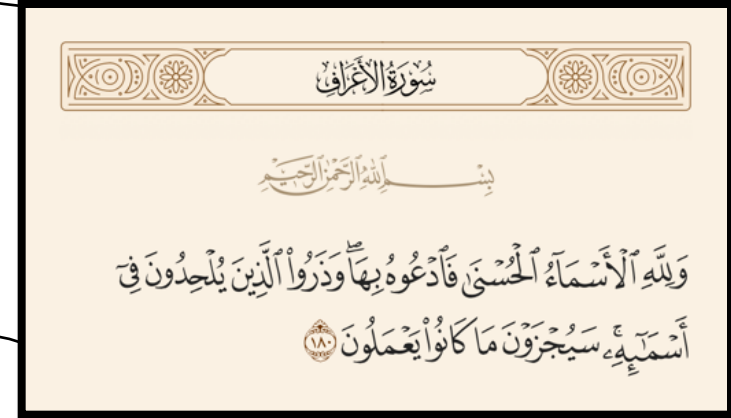 سُورَةُ الأَعْرَافِ
بِسْمِ ٱللَّهِ ٱلرَّحْمَٰنِ ٱلرَّحِيمِ
وَلِلَّهِ ٱلْأَسْمَآءُ ٱلْحُسْنَىٰ فَٱدْعُوهُ بِهَاۖ وَذَرُوا۟ ٱلَّذِينَ يُلْحِدُونَ فِىٓ
أَسْمَٰٓئِهِۦۚ سَيُجْزَوْنَ مَا كَانُوا۟ يَعْمَلُونَ ١٨٠